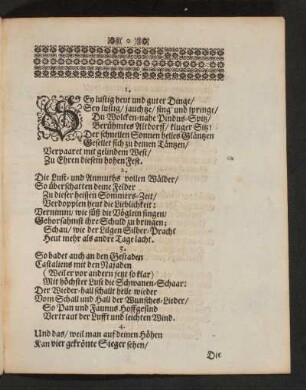 1.
SEy lustig heut und guter Dinge/
Sey lustig/ jauchtze/ sing' und springe/
Du Wolcken-nahe Pindus-Spitz/
Berühmtes Altdorf/ kluger Sitz!
Der schnellen Sonnen helles Gläntzen
Gesellet sich zu deinen Täntzen/
Verpaaret mit gelindem West/
Zu Ehren diesem hohen Fest.
2.
Die Lust- und Anmuths vollen Wälder/
So überschatten deine Felder
Zu dieser heissen Sommers-Zeit/
Verdoppeln heut die Lieblichkeit:
Vernimm/ wie süß die Vöglein singen/
Gehorsamst ihre Schuld zu bringen;
Schau/ wie der Lilgen Silber-Pracht
Heut mehr als andre Tage lacht.
3.
So badet auch an den Gestaden
Castaliens mit den Najaden
(Weil er vor andern jetzt so klar)
Mit höchster Lust die Schwanen-Schaar:
Der Wieder-hall schallt heile wieder
Vom Schall und Hall der Wunsches-Lieder/
So Pan und Faunus Hoffgesind
Vertraut der Lufft und leichten Wind.
4.
Und das/ weil man auf deinen Höhen
Kan vier gekrönte Sieger sehen/
Die